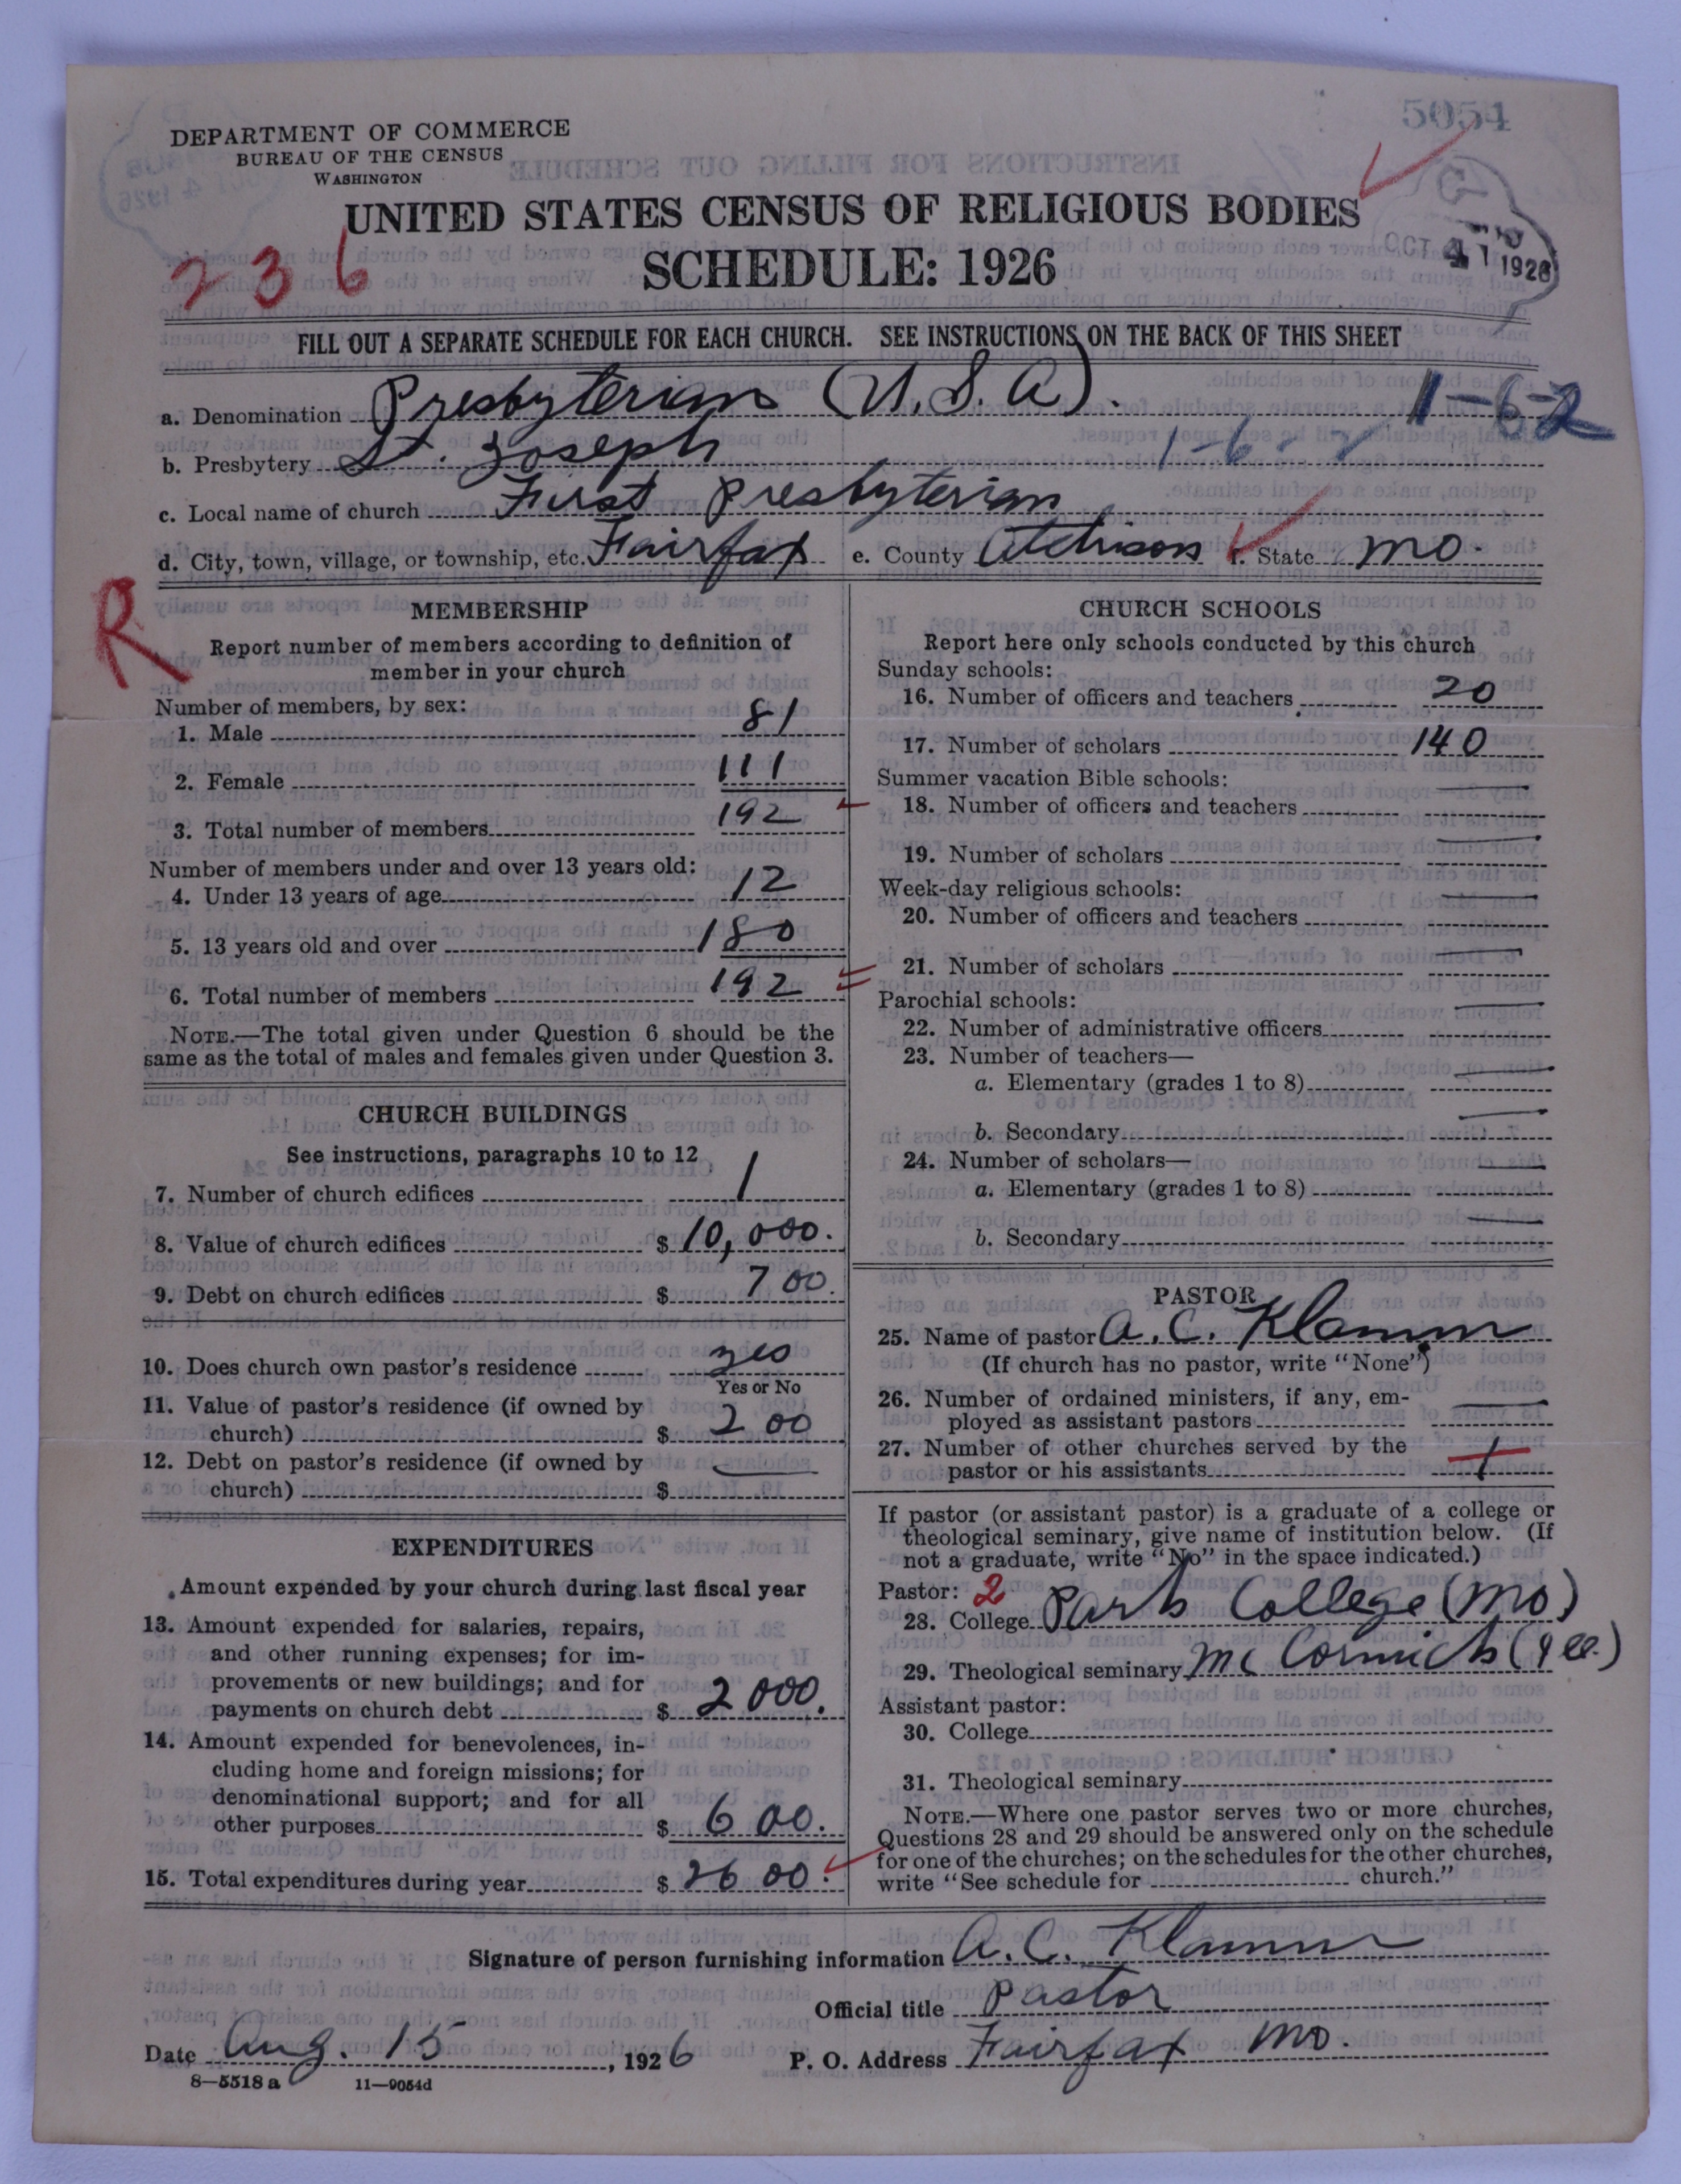 5054
DEPARTMENT OF COMMERCE
BUREAU OF THE CENSUS
WASHINGTON
UNITED STATES CENSUS OF RELIGIOUS BODIES
SCHEDULE: 1926
236
OCT 4 1926
FILL OUT A SEPARATE SCHEDULE FOR EACH CHURCH. SEE INSTRUCTIONS ON THE BACK OF THIS SHEET
a. Denomination Presbyterian (U.S.A). 1-6-2
b. Presbytery St. Joseph 1-6-2
c. Local name of church First Presbyterian
d. City, town, village, or township, etc. Fairfax e. County Atchison f. State Mo.
R
MEMBERSHIP
Report number of members according to definition of
member in your church
Number of members, by sex:
1. Male 81
2. Female 111
3. Total number of members 192
Number of members under and over 13 years old:
4. Under 13 years of age 12
5. 13 years old and over 180
6. Total number of members 192
NOTE.—The total given under Question 6 should be the
same as the total of males and females given under Question 3.
CHURCH BUILDINGS
See instructions, paragraphs 10 to 12
7. Number of church edifices 1
8. Value of church edifices $ 10,000.
9. Debt on church edifices $ 700.
10. Does church own pastor's residence yes
Yes or No
11. Value of pastor's residence (if owned by
church) $ 200
12. Debt on pastor's residence (if owned by
church) $ —
EXPENDITURES
Amount expended by your church during last fiscal year
13. Amount expended for salaries, repairs,
and other running expenses; for im-
provements or new buildings; and for
payments on church debt $ 2000.
14. Amount expended for benevolences, in-
cluding home and foreign missions; for
denominational support; and for all
other purposes $ 600.
15. Total expenditures during year $ 2600.
CHURCH SCHOOLS
Report here only schools conducted by this church
Sunday schools:
16. Number of officers and teachers 20
17. Number of scholars 140
Summer vacation Bible schools:
18. Number of officers and teachers —
19. Number of scholars —
Week-day religious schools:
20. Number of officers and teachers —
21. Number of scholars —
Parochial schools:
22. Number of administrative officers —
23. Number of teachers—
a. Elementary (grades 1 to 8) —
b. Secondary —
24. Number of scholars—
a. Elementary (grades 1 to 8) —
b. Secondary —
PASTOR
25. Name of pastor A. C. Klamm
(If church has no pastor, write "None")
26. Number of ordained ministers, if any, em-
ployed as assistant pastors —
27. Number of other churches served by the
pastor or his assistants 1
If pastor (or assistant pastor) is a graduate of a college or
theological seminary, give name of institution below. (If
not a graduate, write "No" in the space indicated.)
Pastor: 2
28. College Park College (Mo)
29. Theological seminary McCormick (Ill.)
Assistant pastor:
30. College
31. Theological seminary
NOTE.—Where one pastor serves two or more churches,
Questions 28 and 29 should be answered only on the schedule
for one of the churches; on the schedules for the other churches,
write "See schedule for church."
Signature of person furnishing information A. C. Klamm
Official title Pastor
Date Aug. 15, 1926 P. O. Address Fairfax Mo.
8—5518 a 11—9054d